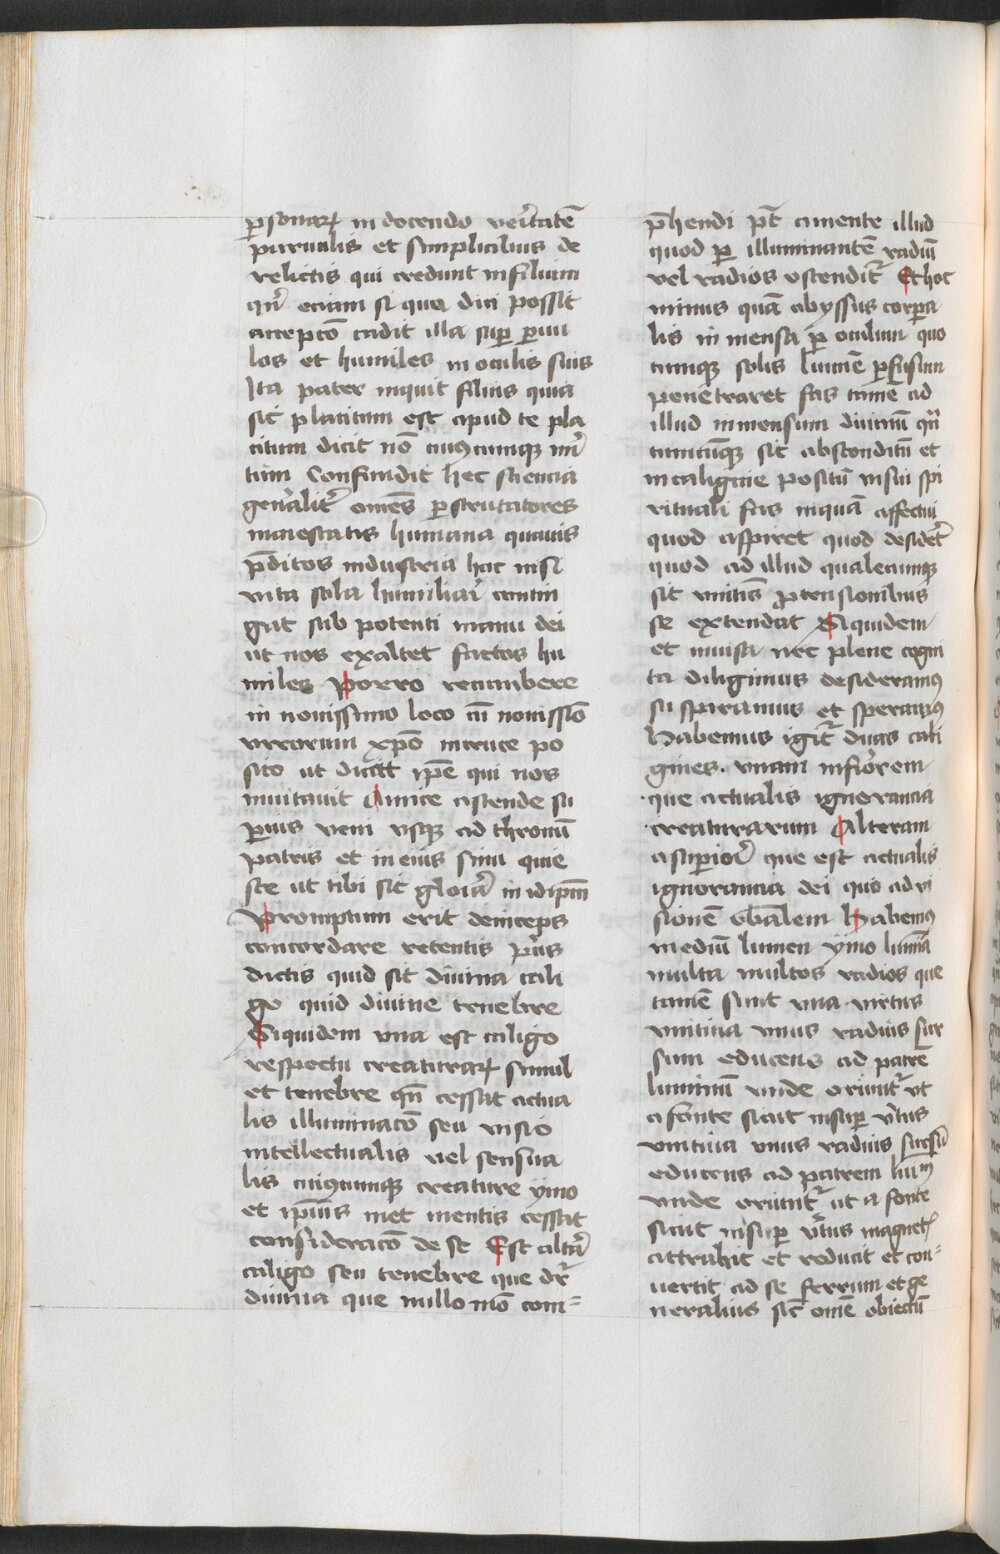 ꝑsonaꝝ in docendo veritatē
paruulis et simplicibus de
relictis qui credunt in filium
qr̄ eciam si qua dici possit
accepcō cadit illa suꝑ paruu
los et humiles in oculis suis
Ita pater inquit filius quia
sic placitum est apud te pla
citum dicit nō cuiuscumqꝫ
tum Confundit hec sciencia
gen̄aliter omēs ꝑscrutatores
maiestatis humana quauis
p̄ditos industria hac nisi
vita sola humiliari contin
gat sub potenti manu dei
ut nos exaltet factos hu
miles Porro recumbere
in nouissimo loco cū nouissīo
virorum xp̄o in cruce po
sito ut dicat ip̄e qui nos
inuitauit Amice ascende su
perius veni usqꝫ ad thronū
patris et in eius sinu quie
sce ut tibi sit gloīa in idip̄m
Promptum erit deinceps
concordare retentis p̄us
dictis quid sit diuina cali
go quid diuine tenebre
Siquidem una est caligo
respectu creaturaꝝ simul
et tenebre qn̄ cessat actua
lis illuminacō seu visio
intellectualis vel sensua
lis cuiuscumqꝫ creature ymo
et ip̄ius met mentis cessat
consideracō de se Est alt̄a
caligo seu tenebre que dr̄
diuina que nullo mō com=
p̄hendi pt̄ a mente illud
quod ꝑ illuminantē radiū
vel radios ostenditr̄ Et hoc
minus quā abyssus corpa
lis in mensa ꝑ oculum quo
cumqꝫ solis lumē ꝑfusum
penetraret fas tamē ad
illud inmensum diuinū qn̄
tumcūqꝫ sit absconditū et
in caligine positū visui spi
rituali fas inquā affectui
quod aspiret quod desidet̄
quod ad illud qualecumqꝫ
sit unitis ꝓtensionibus
se extendat Siquidem
et inuisa nec plene cogni
ta diligimus desideramus
suspiramus et speramus
Habemus igitr̄ duas cali
gines. unam inferiorem
que actualis ignorancia
creaturarum Alteram
a superiori que est actualis
ignorancia dei quo ad vi
sionē Habemus
mediū lumen ymo lumīa
multa multos radios que
tamē sunt una virtus
unitiua unus radius sur
sum educens ad patrē
luminū unde oriuntr̄ ut
a fonte sicut insuꝑ v̄tus
unitiua unus radius sursū
educens ad patrem luīm
unde oriuntr̄ ut a fonte
sicut insuꝑ v̄tus magnet̄
attrahit et reducit et con=
uertit ad se ferrum et ge
neralius sic omē obiectū